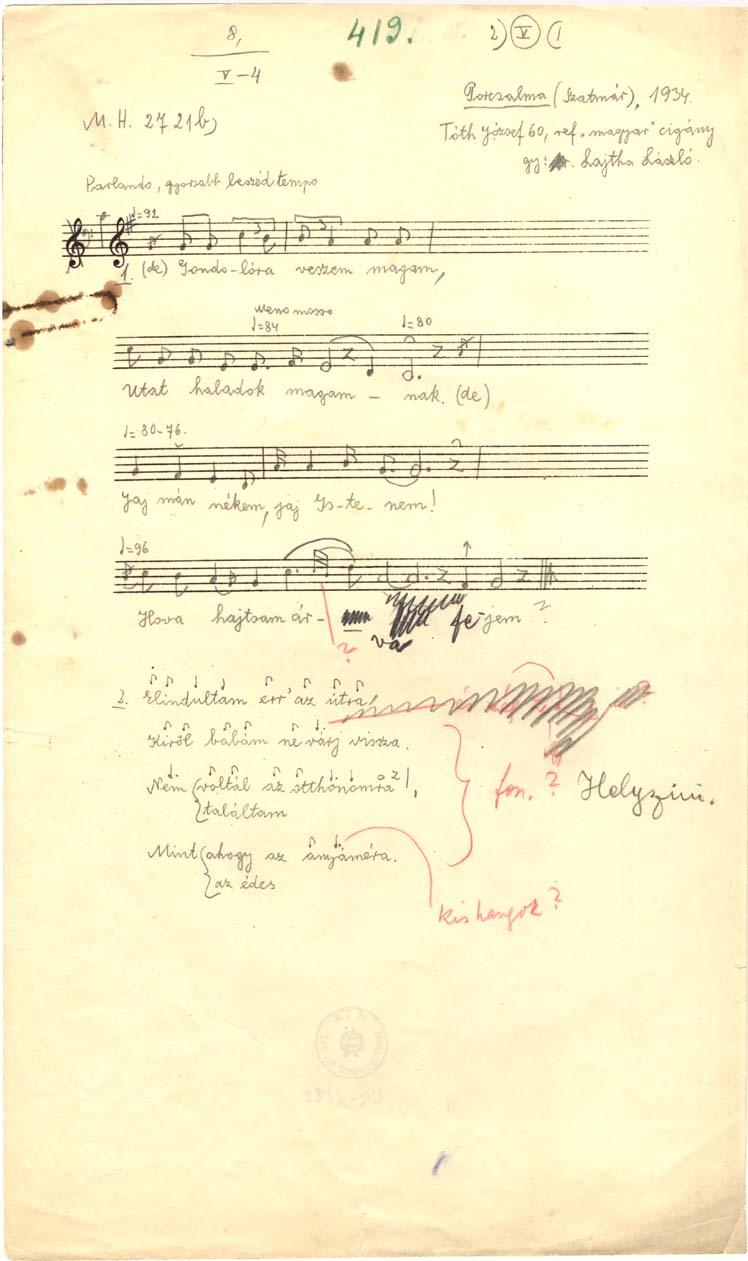 8,
V-4
419.
2) V (1
M. H. 2721b)
Porcsalma (Szatmár), 1934.
Tóth József 60, ref. "magyar" cigány
gy: Lajtha László.
Parlando, gyorsabb beszéd tempo
♩=92
1. (de) Gondo-lóra veszem magam,
Meno mosso
♩=84 ♩=80
Utat haladok magam - nak. (de)
♩=80-76.
Jaj mán nékem, jaj Is-te-nem!
♩=96
Hova hajtsam ár- va fe-jem?
?
2. Elindultam err' az útra,
Kiről babám ne várj vissza.
Nem (voltál az otthonomra,
találtam
Mint (ahogy az anyáméra.
az édes
fon.? Helyszini.
kishangok?